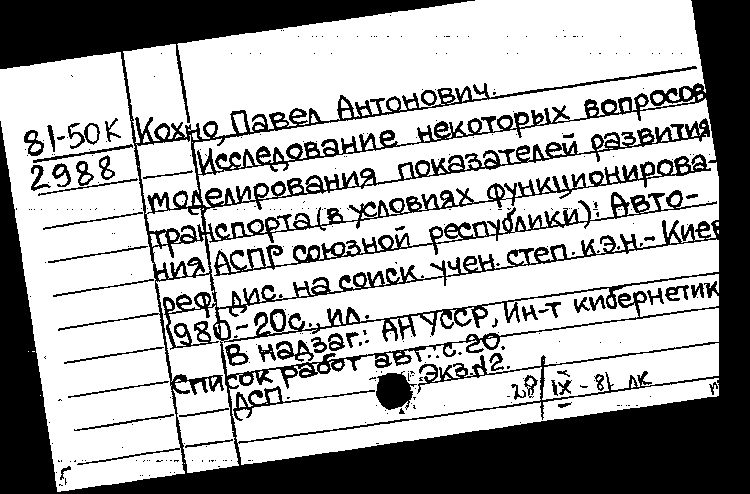 81-50К Кохно, Павел Антонович.
2988 Исследование некоторых вопросов
моделирования показателей развития
транспорта (в условиях функционирова-
ния АСПР союзной республики): Авто-
реф. дис. на соиск. учен. степ. к.э.н. - Киев
1980. - 20с., ил.
В надзаг.: АН УССР, Ин-т кибернетик
Список работ авт.: с. 20.
ДСП. Экз. №2.
28/IX - 81 лк